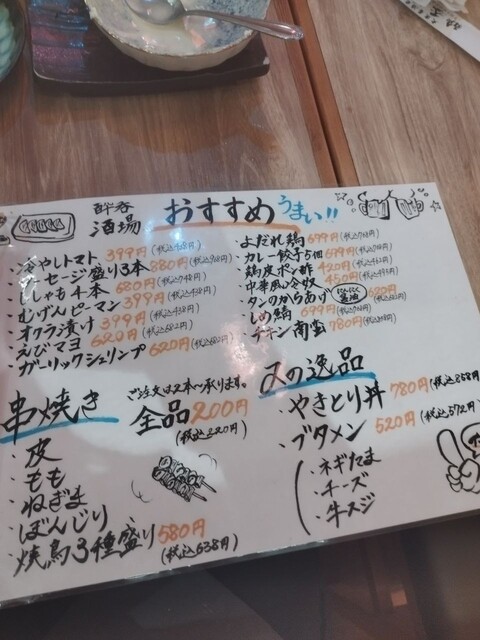 酔呑
酒場
おすすめ
うまい!!
・冷やしトマト 399円(税込438円)
・ソーセージ盛り3本 880円(税込968円)
・ししゃも4本 680円(税込748円)
・むげんピーマン 399円(税込438円)
・オクラ漬け 399円(税込438円)
・えびマヨ 620円(税込682円)
・ガーリックシュリンプ 620円(税込682円)
・よだれ鶏 699円
・カレー餃子5個 699円
・鶏皮ポン酢 420円(税込462円)
・中華風冷奴 450円(税込495円)
・タンのからあげ にんにく 醤油
・しめ鯖 699円
・チキン南蛮 780円
串焼き
ご注文は2本〜承ります。
全品200円
(税込220円)
・皮
・もも
・ねぎま
・ぼんじり
・焼鳥3種盛り 580円
(税込638円)
〆の逸品
・やきとり丼 780円(税込858円)
・ブタメン 520円(税込572円)
・ネギたま
・チーズ
・牛スジ